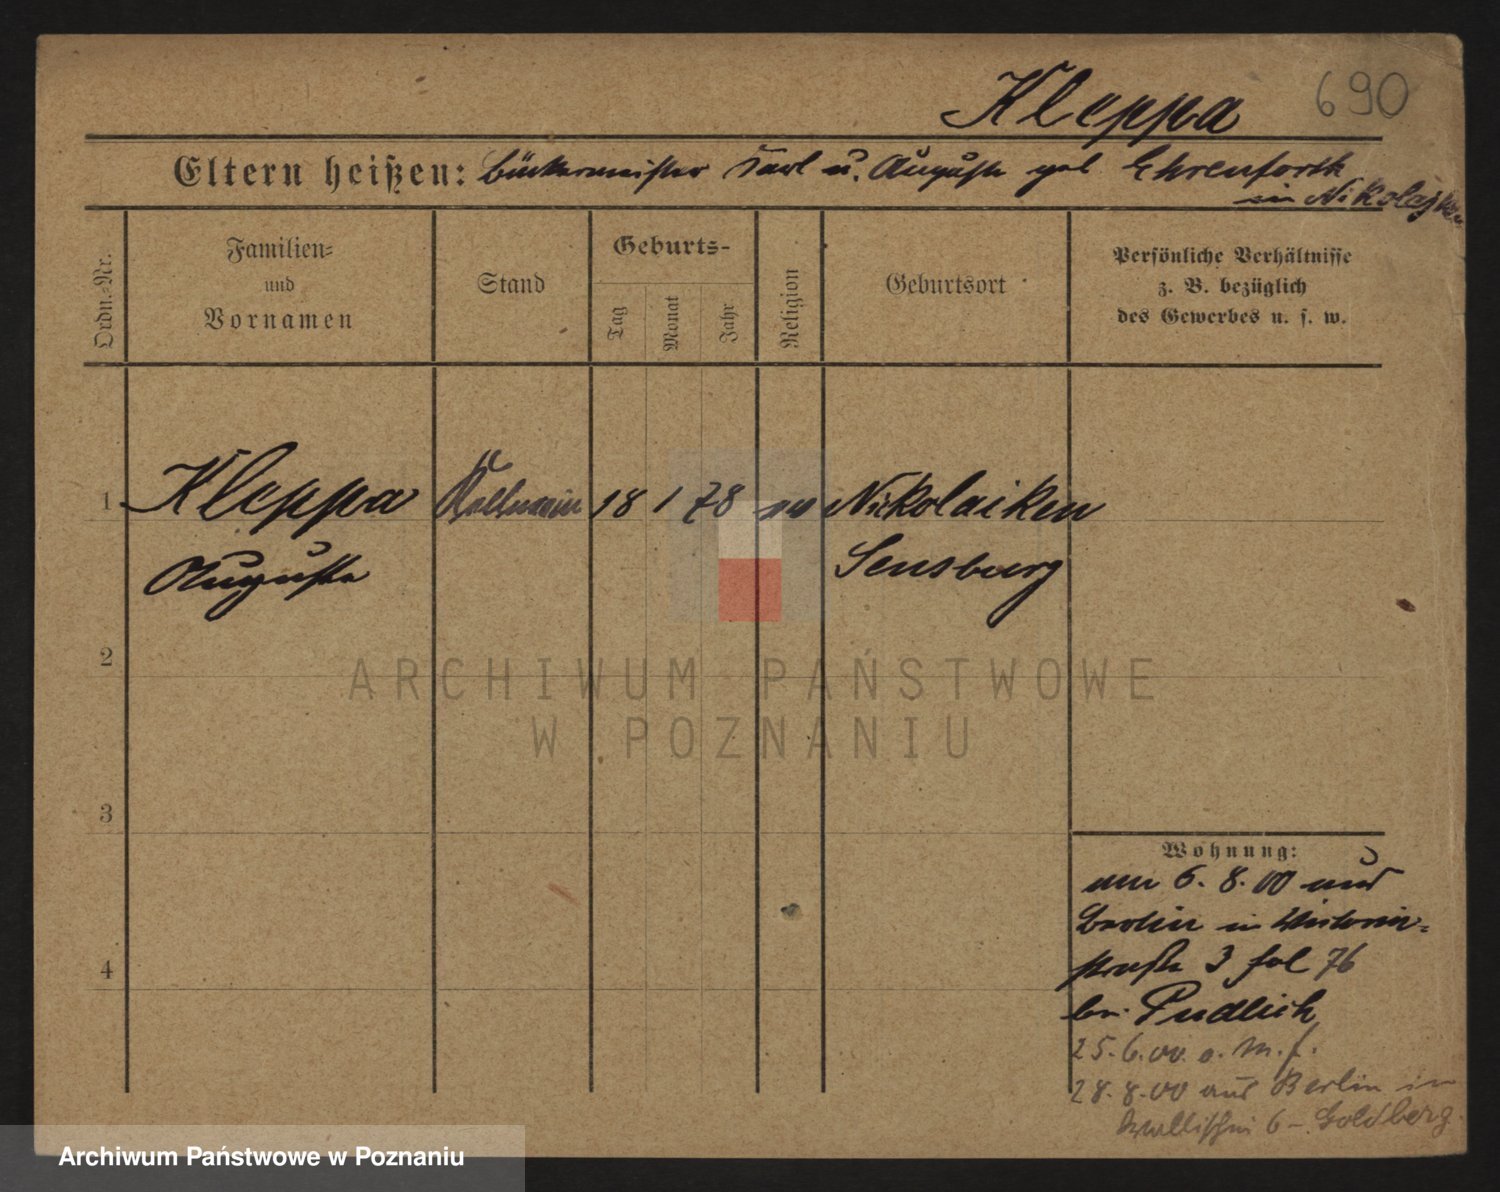 Kleppa 690
Eltern heißen: Bäckermeister Karl u. Auguste geb Ehrenforth
in Nikolajken
Ordn.-Nr.
Familien-
und
Vornamen
Stand
Geburts-
Tag
Monat
Jahr
Religion
Geburtsort
Persönliche Verhältnisse
z. B. bezüglich
des Gewerbes u. s. w.
1 Kleppa 18 1 78 ev Nikolaiken
Auguste Sensburg
2
3
4
Wohnung:
am 6. 8. 00 aus
Berlin in Victoria-
straße 3 fol 76
bei Pudlich
25. 6. 00. o. M. f.
28. 8. 00 aus Berlin in
Wallischei 6 - Goldberg.
ARCHIWUM PAŃSTWOWE
W POZNANIU
Archiwum Państwowe w Poznaniu